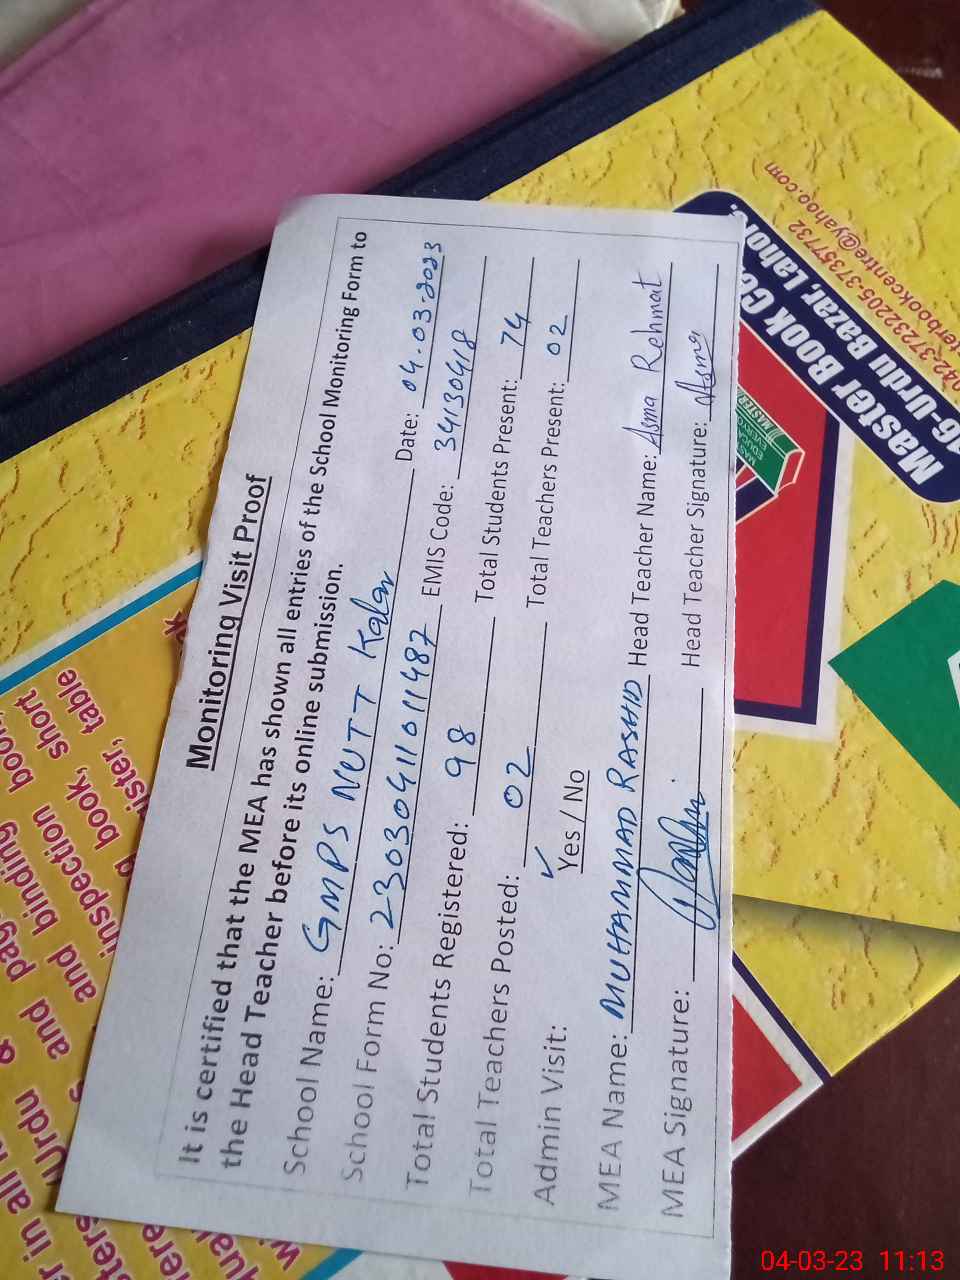 Monitoring Visit Proof
It is certified that the MEA has shown all entries of the School Monitoring Form to
the Head Teacher before its online submission.
School Name: GMPS NUTT Kalan Date: 04.03.2023
School Form No: 23030411011487 EMIS Code: 34130418
Total Students Registered: 98 Total Students Present: 74
Total Teachers Posted: 02 Total Teachers Present: 02
Admin Visit: ✓ Yes / No
MEA Name: MUHAMMAD RASHID Head Teacher Name: Asma Rehmat
MEA Signature: Head Teacher Signature: Asma
Master Book
16-Urdu Bazar, Lahore.
042-37232205-37357732
terbookcentre@yahoo.com
MASTER
book, short
table
inspection
and binding
and
Urdu &
in all
04-03-23 11:13